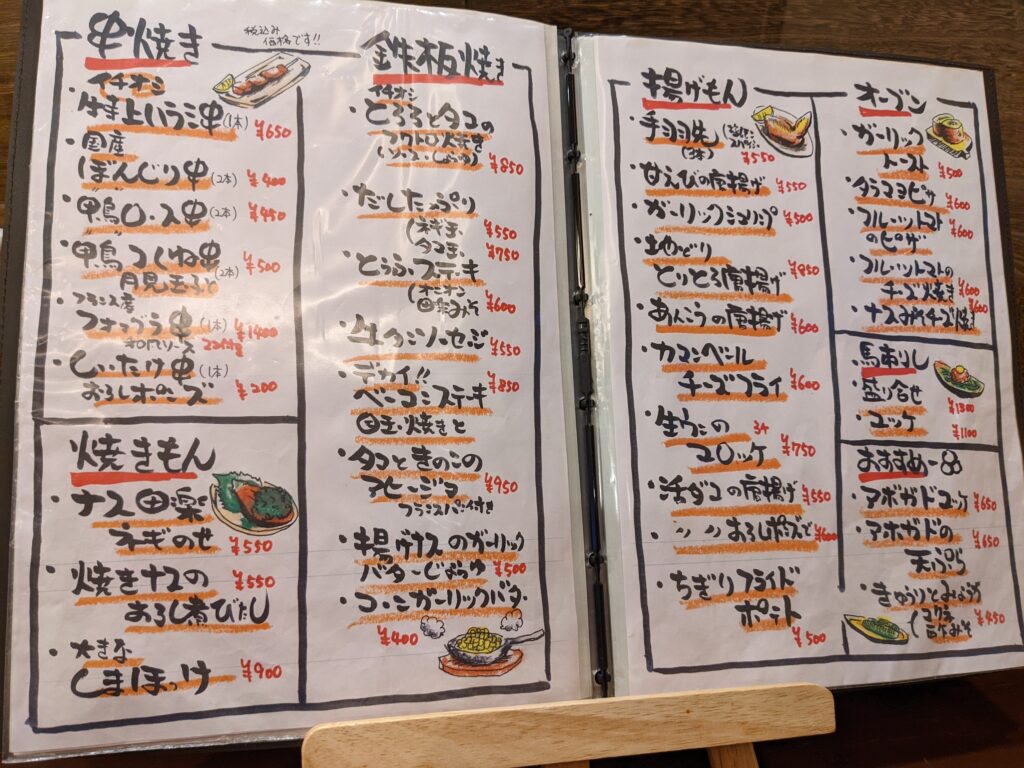 串焼き
税込み
価格です!!
イチオシ
・牛特上ハラミ串(1本) ¥650
・国産
ぼんじり串(2本) ¥400
・鴨ロース串(2本) ¥450
・鴨つくね串(2本) ¥500
月見玉子と
・フランス産
フォアグラ串(1本) ¥1400
・しいたけ串(1本)
おろしポンズ ¥200
焼きもん
・ナス田楽
ネギのせ ¥550
・焼きナスの ¥550
おろし煮びたし
・大きな
しまほっけ ¥900
鉄板焼き
イチオシ
・とろろとタコの
アツトロ焼き
(ソース・しょうゆ) ¥850
・だしたっぷり
(ネギ玉 ¥550
タマ玉 ¥750
・とうふステーキ
(オニオン
田楽みそ ¥600
・生タンソーセージ ¥550
・デカイ!! ¥850
ベーコンステーキ
目玉焼きと
・タコときのこの
アヒージョ ¥950
フランスパン付き
・揚げナスのガーリック
バターじょうゆ ¥500
・コーンガーリックバター
¥400
揚げもん
・手羽先
(3本) ¥550
・甘えびの唐揚げ ¥550
・ガーリックシュリンプ ¥500
・地どり ¥850
とりとろ唐揚げ
・あんこうの唐揚げ ¥600
・カマンベール
チーズフライ ¥600
・生ウニの
コロッケ ¥750
・活ダコの唐揚げ ¥550
・〃〃おろしポンズで ¥600
・ちぎりフライド
ポテト ¥500
オーブン
・ガーリック
トースト ¥500
・タラマヨピザ ¥600
・フルーツトマト
のピザ ¥600
・フルーツトマトの
チーズ焼き ¥600
・ナスみそチーズ焼き ¥600
馬刺し
・盛り合せ ¥1300
・ユッケ ¥1100
おすすめー
・アボガドユッケ ¥650
・アボガドの ¥650
天ぷら
・きゅうりとみょうが ¥450